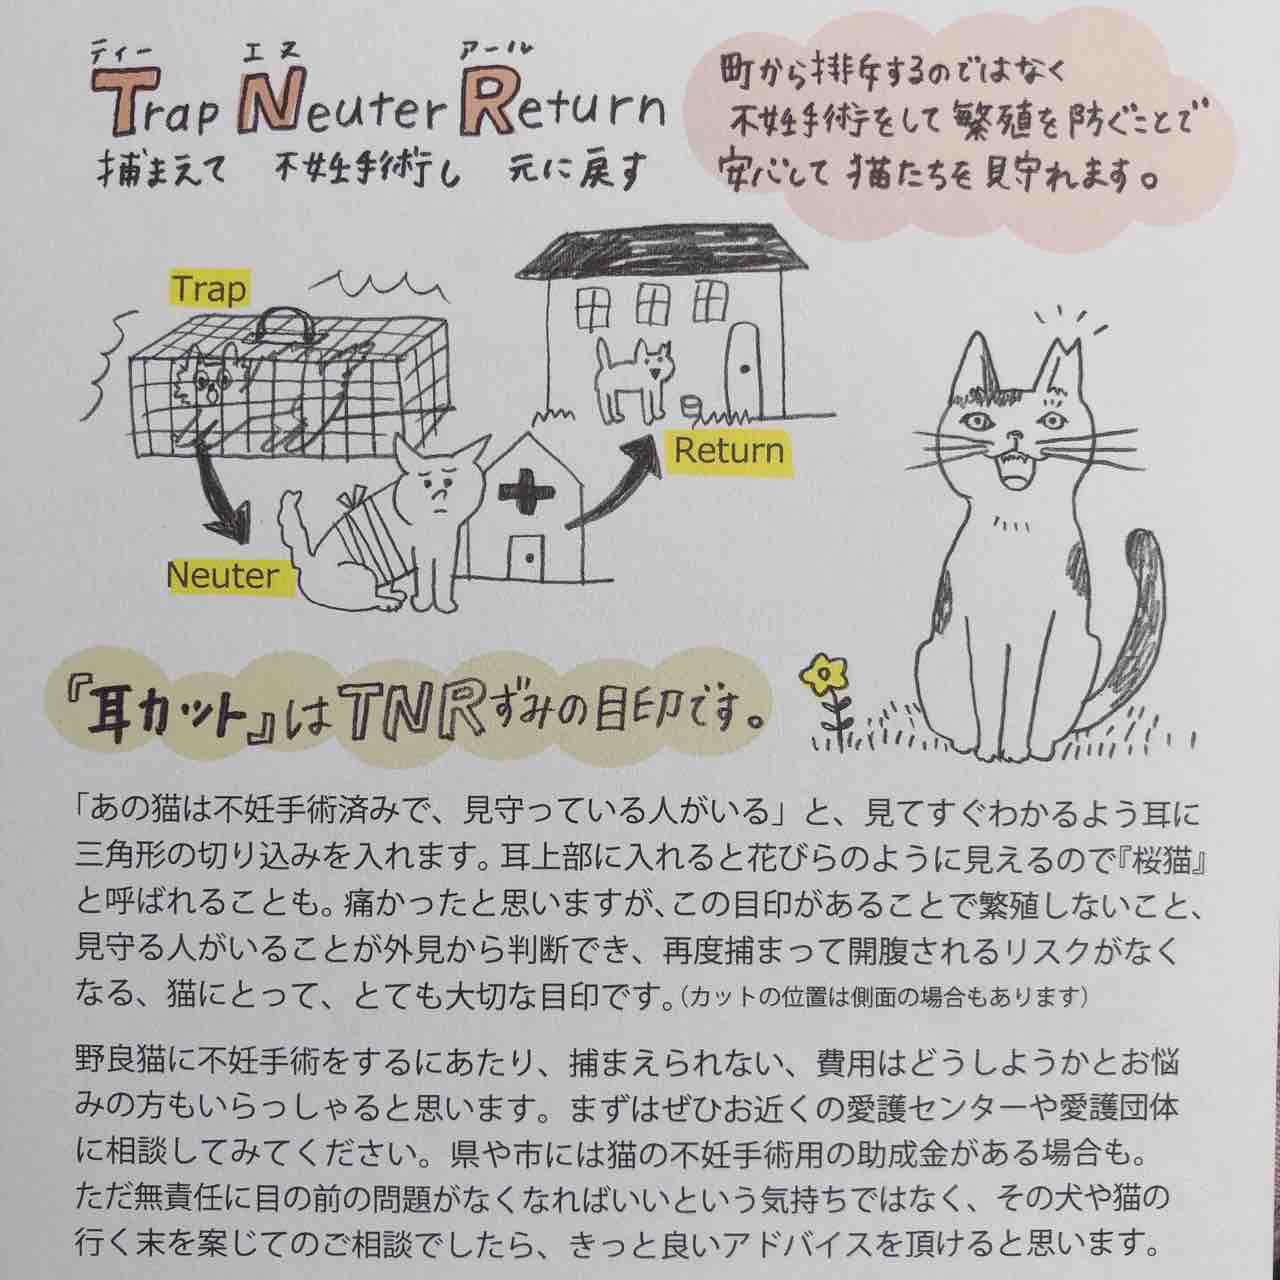 ティー エス アール
Trap Neuter Return
捕まえて 不妊手術し 元に戻す
町から排斥するのではなく
不妊手術をして繁殖を防ぐことで
安心して猫たちを見守れます。
Trap
Return
Neuter
『耳カット』はTNRずみの目印です。
「あの猫は不妊手術済みで、見守っている人がいる」と、見てすぐわかるよう耳に
三角形の切り込みを入れます。耳上部に入れると花びらのように見えるので『桜猫』
と呼ばれることも。痛かったと思いますが、この目印があることで繁殖しないこと、
見守る人がいることが外見から判断でき、再度捕まって開腹されるリスクがなく
なる、猫にとって、とても大切な目印です。（カットの位置は側面の場合もあります）
野良猫に不妊手術をするにあたり、捕まえられない、費用はどうしようかとお悩
みの方もいらっしゃると思います。まずはぜひお近くの愛護センターや愛護団体
に相談してみてください。県や市には猫の不妊手術用の助成金がある場合も。
ただ無責任に目の前の問題がなくなればいいという気持ちではなく、その犬や猫の
行く末を案じてのご相談でしたら、きっと良いアドバイスを頂けると思います。